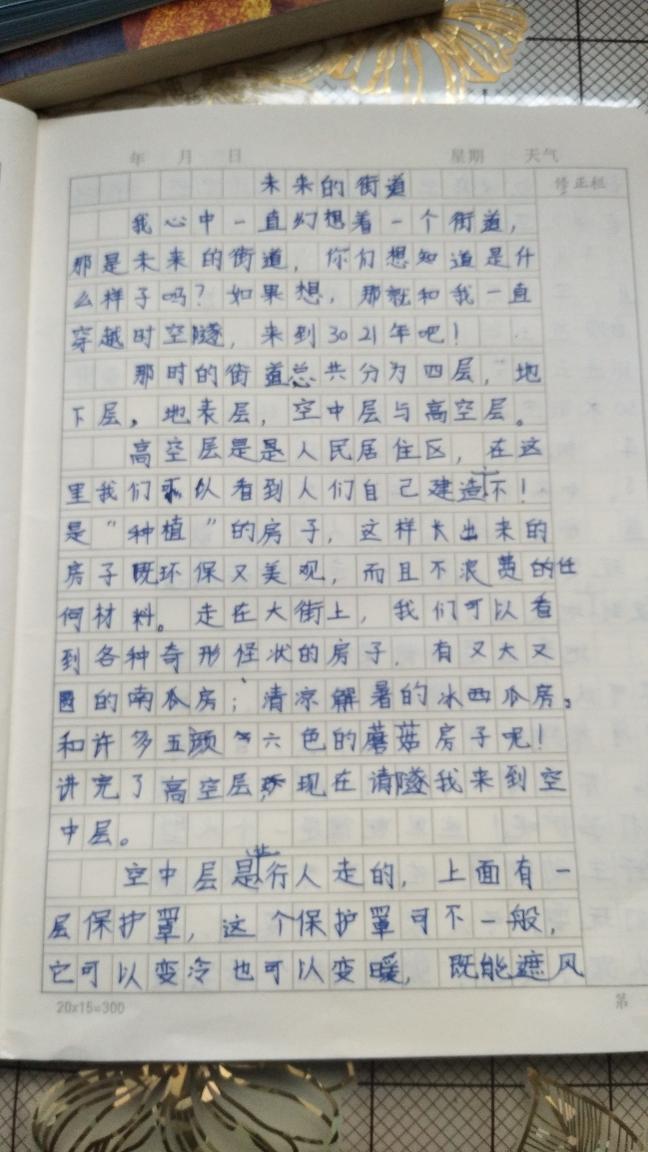 年 月 日 星期 天气
未来的街道 修正栏
我心中一直幻想着一个街道，
那是未来的街道，你们想知道是什
么样子吗？如果想，那就和我一直
穿越时空隧，来到3021年吧！
那时的街道总共分为四层，地
下层，地表层，空中层与高空层。
高空层是是人民居住区，在这
里我们可以看到人们自己建造不！
是“种植”的房子，这样长出来的
房子既环保又美观，而且不浪费的任
何材料。走在大街上，我们可以看
到各种奇形怪状的房子，有又大又
圆的南瓜房；清凉解暑的冰西瓜房。
和许多五颜六色的蘑菇房子呢！
讲完了高空层 现在请隧我来到空
中层。
空中层是行人走的，上面有一
层保护罩，这个保护罩可不一般，
它可以变冷也可以变暖，既能遮风
20x15=300 第